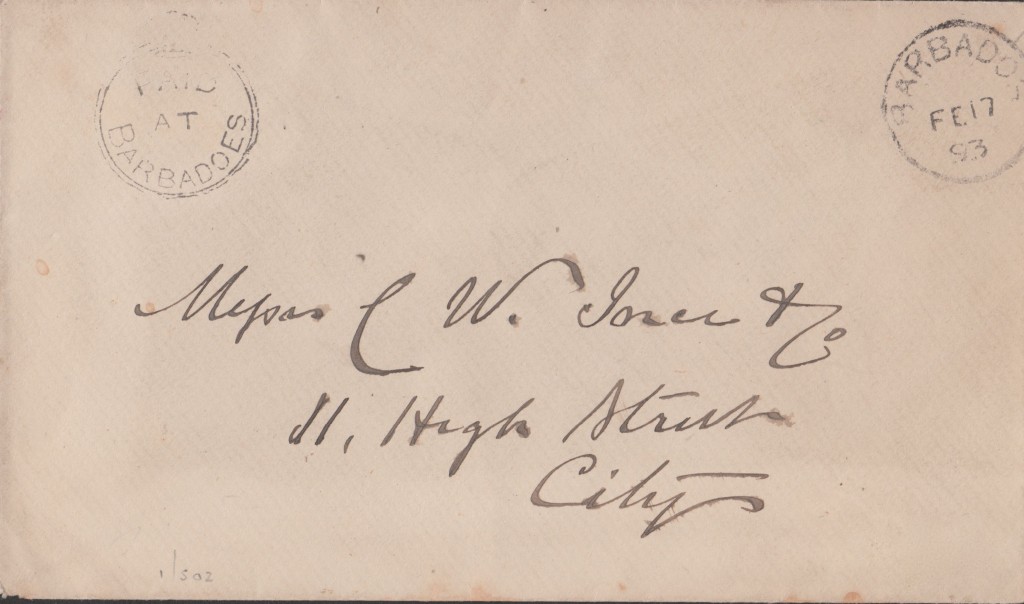 PAID
AT
BARBADOES
BARBADOES
FE 17
93
Messrs C W. Jones & Co
11, High Street
City
1/502